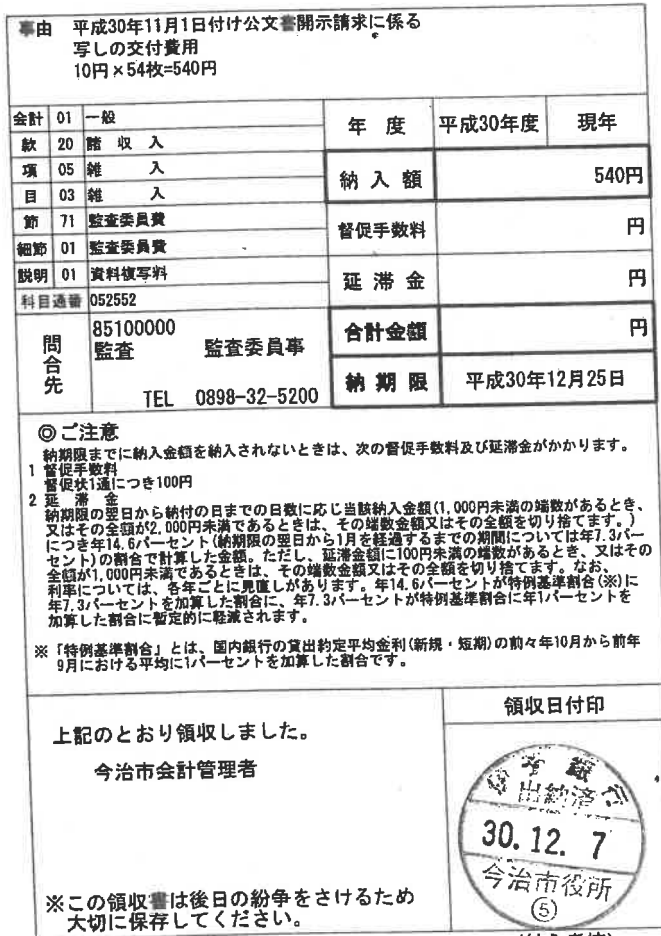 事由 平成30年11月1日付け公文書開示請求に係る
写しの交付費用
10円×54枚=540円
会計 01 一般
款 20 諸 収 入
項 05 雑 入
目 03 雑 入
節 71 監査委員費
細節 01 監査委員費
説明 01 資料複写料
科目通番 052552
年 度 平成30年度 現年
納 入 額 540円
督促手数料 円
延 滞 金 円
合計金額 円
納 期 限 平成30年12月25日
問合先
85100000
監査 監査委員事
TEL 0898-32-5200
◎ご注意
納期限までに納入金額を納入されないときは、次の督促手数料及び延滞金がかかります。
1 督促手数料
督促状1通につき100円
2 延 滞 金
納期限の翌日から納付の日までの日数に応じ当該納入金額(1,000円未満の端数があるとき、
又はその全額が2,000円未満であるときは、その端数金額又はその全額を切り捨てます。)
につき年14.6パーセント(納期限の翌日から1月を経過するまでの期間については年7.3パー
セント)の割合で計算した金額。ただし、延滞金額に100円未満の端数があるとき、又はその
全額が1,000円未満であるときは、その端数金額又はその全額を切り捨てます。なお、
利率については、各年ごとに見直しがあります。年14.6パーセントが特例基準割合(※)に
年7.3パーセントを加算した割合に、年7.3パーセントが特例基準割合に年1パーセントを
加算した割合に暫定的に軽減されます。
※「特例基準割合」とは、国内銀行の貸出約定平均金利(新規・短期)の前々年10月から前年
9月における平均に1パーセントを加算した割合です。
上記のとおり領収しました。
今治市会計管理者
※この領収書は後日の紛争をさけるため
大切に保存してください。
領収日付印
伊予銀行
出納済
30.12.7
今治市役所
⑤